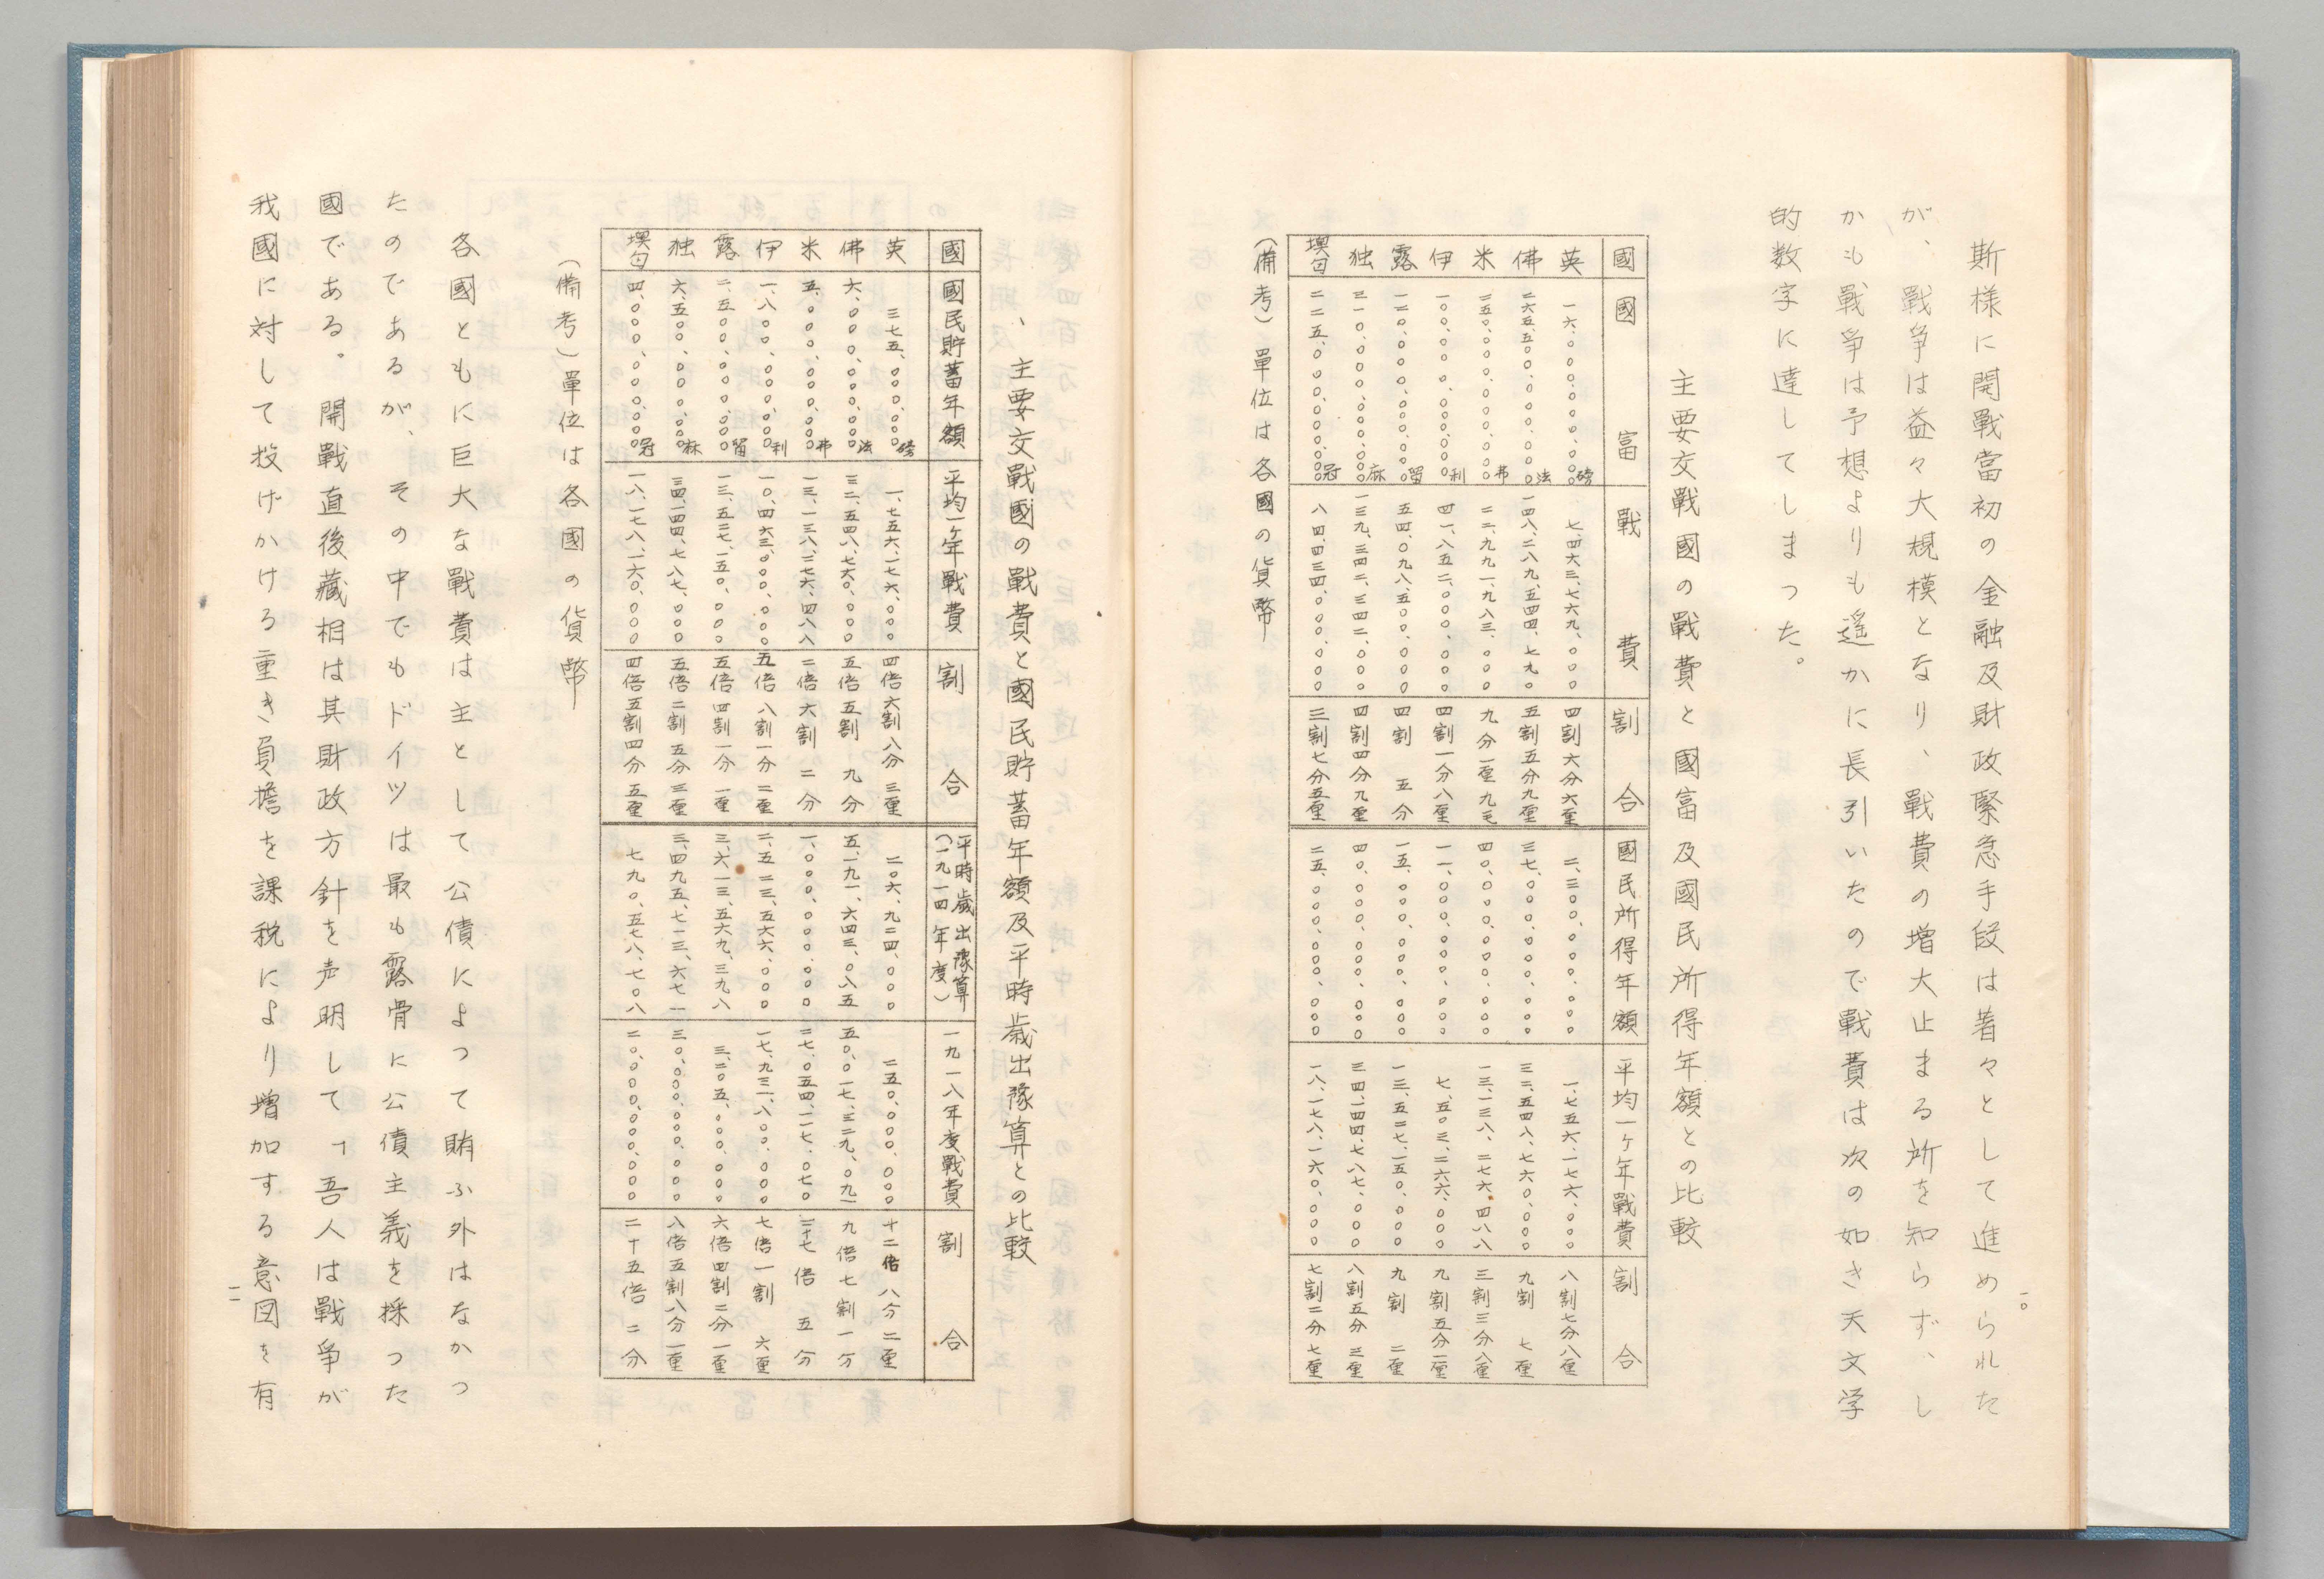 一〇
斯様に開戰當初の金融及財政緊急手段は着々として進められた
が、戰争は益々大規模となり、戰費の増大止まる所を知らず、し
かも戰争は予想よりも遥かに長引いたので戰費は次の如き天文学
的数字に達してしまつた。
主要交戰國の戰費と國富及國民所得年額との比較
國 國富 戰費 割合 國民所得年額 平均一ヶ年戰費 割合
英 一六、〇〇〇、〇〇〇、〇〇〇磅 七、四六三、七六九、〇〇〇 四割六分六厘 二、三〇〇、〇〇〇、〇〇〇 一、七五六、一七六、〇〇〇 八割七分八厘
佛 二六五、五〇〇、〇〇〇、〇〇〇法 一四八、二八九、五四四、七九〇 五割五分九厘 三七、〇〇〇、〇〇〇、〇〇〇 三二、五四八、七六〇、〇〇〇 九割七厘
米 二五〇、〇〇〇、〇〇〇、〇〇〇弗 二二、九九一、九八三、〇〇〇 九分一厘九毛 四〇、〇〇〇、〇〇〇、〇〇〇 一三、一三八、二七六、四八八 三割三分八厘
伊 一〇〇、〇〇〇、〇〇〇、〇〇〇利 四一、八五二、〇〇〇、〇〇〇 四割一分八厘 一一、〇〇〇、〇〇〇、〇〇〇 七、五〇三、二六六、〇〇〇 九割五分一厘
露 一二〇、〇〇〇、〇〇〇、〇〇〇留 五四、〇九八、五〇〇、〇〇〇 四割五分 一五、〇〇〇、〇〇〇、〇〇〇 一三、五二七、一五〇、〇〇〇 九割二厘
独 三一〇、〇〇〇、〇〇〇、〇〇〇麻 一三九、三四二、三四二、〇〇〇 四割四分九厘 四〇、〇〇〇、〇〇〇、〇〇〇 三四、一四四、七八七、〇〇〇 八割五分三厘
墺匈 二二五、〇〇〇、〇〇〇、〇〇〇冠 八四、四三四、〇〇〇、〇〇〇 三割七分五厘 二五、〇〇〇、〇〇〇、〇〇〇 一八、一七八、一六〇、〇〇〇 七割二分七厘
（備考）單位は各國の貨幣
、主要交戰國の戰費と國民貯蓄年額及平時歳出豫算との比較
國 國民貯蓄年額 平均一ヶ年戰費 割合 平時歳出豫算（一九一四年度） 一九一八年度戰費 割合
英 三七五、〇〇〇、〇〇〇磅 一、七五六、一七六、〇〇〇 四倍六割八分三厘 二〇六、九二四、〇〇〇 二五〇、〇〇〇、〇〇〇 十二倍八分二厘
佛 六、〇〇〇、〇〇〇、〇〇〇法 三二、五四八、七六〇、〇〇〇 五倍五割九分 五、一九一、六四三、〇八五 五〇、〇一七、三二九、〇九一 九倍七割一分
米 五、〇〇〇、〇〇〇、〇〇〇弗 一三、一三八、二七六、四八八 二倍六割二分 一、〇〇〇、〇〇〇、〇〇〇 二七、〇五四、一一七、〇七〇 二十七倍五分
伊 一、八〇〇、〇〇〇、〇〇〇利 一〇、四六三、〇〇〇、〇〇〇 五倍八割一分二厘 二、五二三、五六六、〇〇〇 一七、九三一、八〇〇、〇〇〇 七倍一割六厘
露 二、五〇〇、〇〇〇、〇〇〇留 一三、五二七、一五〇、〇〇〇 五倍四割一分一厘 三、六一三、五六九、三九八 三、二〇五、〇〇〇、〇〇〇 六倍四割二分一厘
独 六、五〇〇、〇〇〇、〇〇〇麻 三四、一四四、七八七、〇〇〇 五倍二割五分三厘 三、四九五、七一三、六七一 三〇、〇〇〇、〇〇〇、〇〇〇 八倍五割八分一厘
墺匈 四、〇〇〇、〇〇〇、〇〇〇冠 一八、一七八、一六〇、〇〇〇 四倍五割四分五厘 七九〇、五七八、七〇八 二〇、〇〇〇、〇〇〇、〇〇〇 二十五倍二分
（備考）單位は各國の貨幣
各國ともに巨大な戰費は主として公債によつて賄ふ外はなかつ
たのであるが、その中でもドイツは最も露骨に公債主義を採つた
國である。開戰直後藏相は其財政方針を声明して「吾人は戰爭が
我國に対して投げかける重き負擔を課税により増加する意図を有
一一